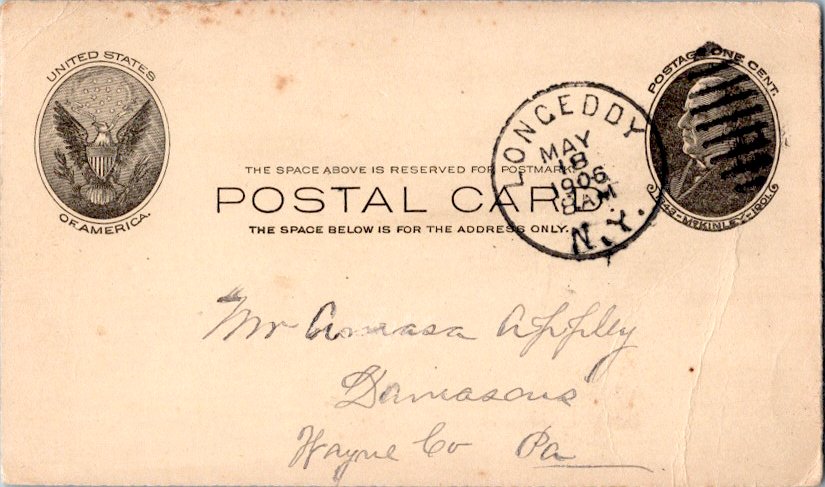 UNITED STATES
OF AMERICA.
POSTAGE ONE CENT.
1843-McKINLEY-1901
LONGEDDY
MAY
18
1906
8AM
N.Y.
THE SPACE ABOVE IS RESERVED FOR POSTMARK.
POSTAL CARD
THE SPACE BELOW IS FOR THE ADDRESS ONLY.
Mr Amasa Appley
Damascus
Wayne Co Pa